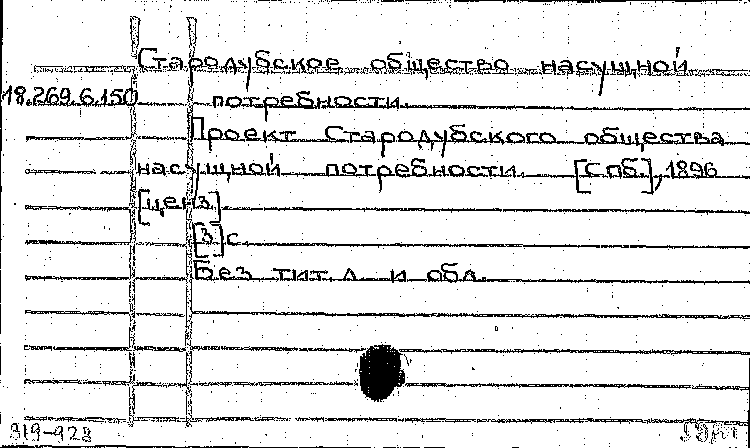 Стародубское общество насущной
18.269.6.150 потребности.
Проект Стародубского общества
насущной потребности. [Спб.], 1896
[ценз.].
[3] с.
Без тит. л. и обл.
919-928